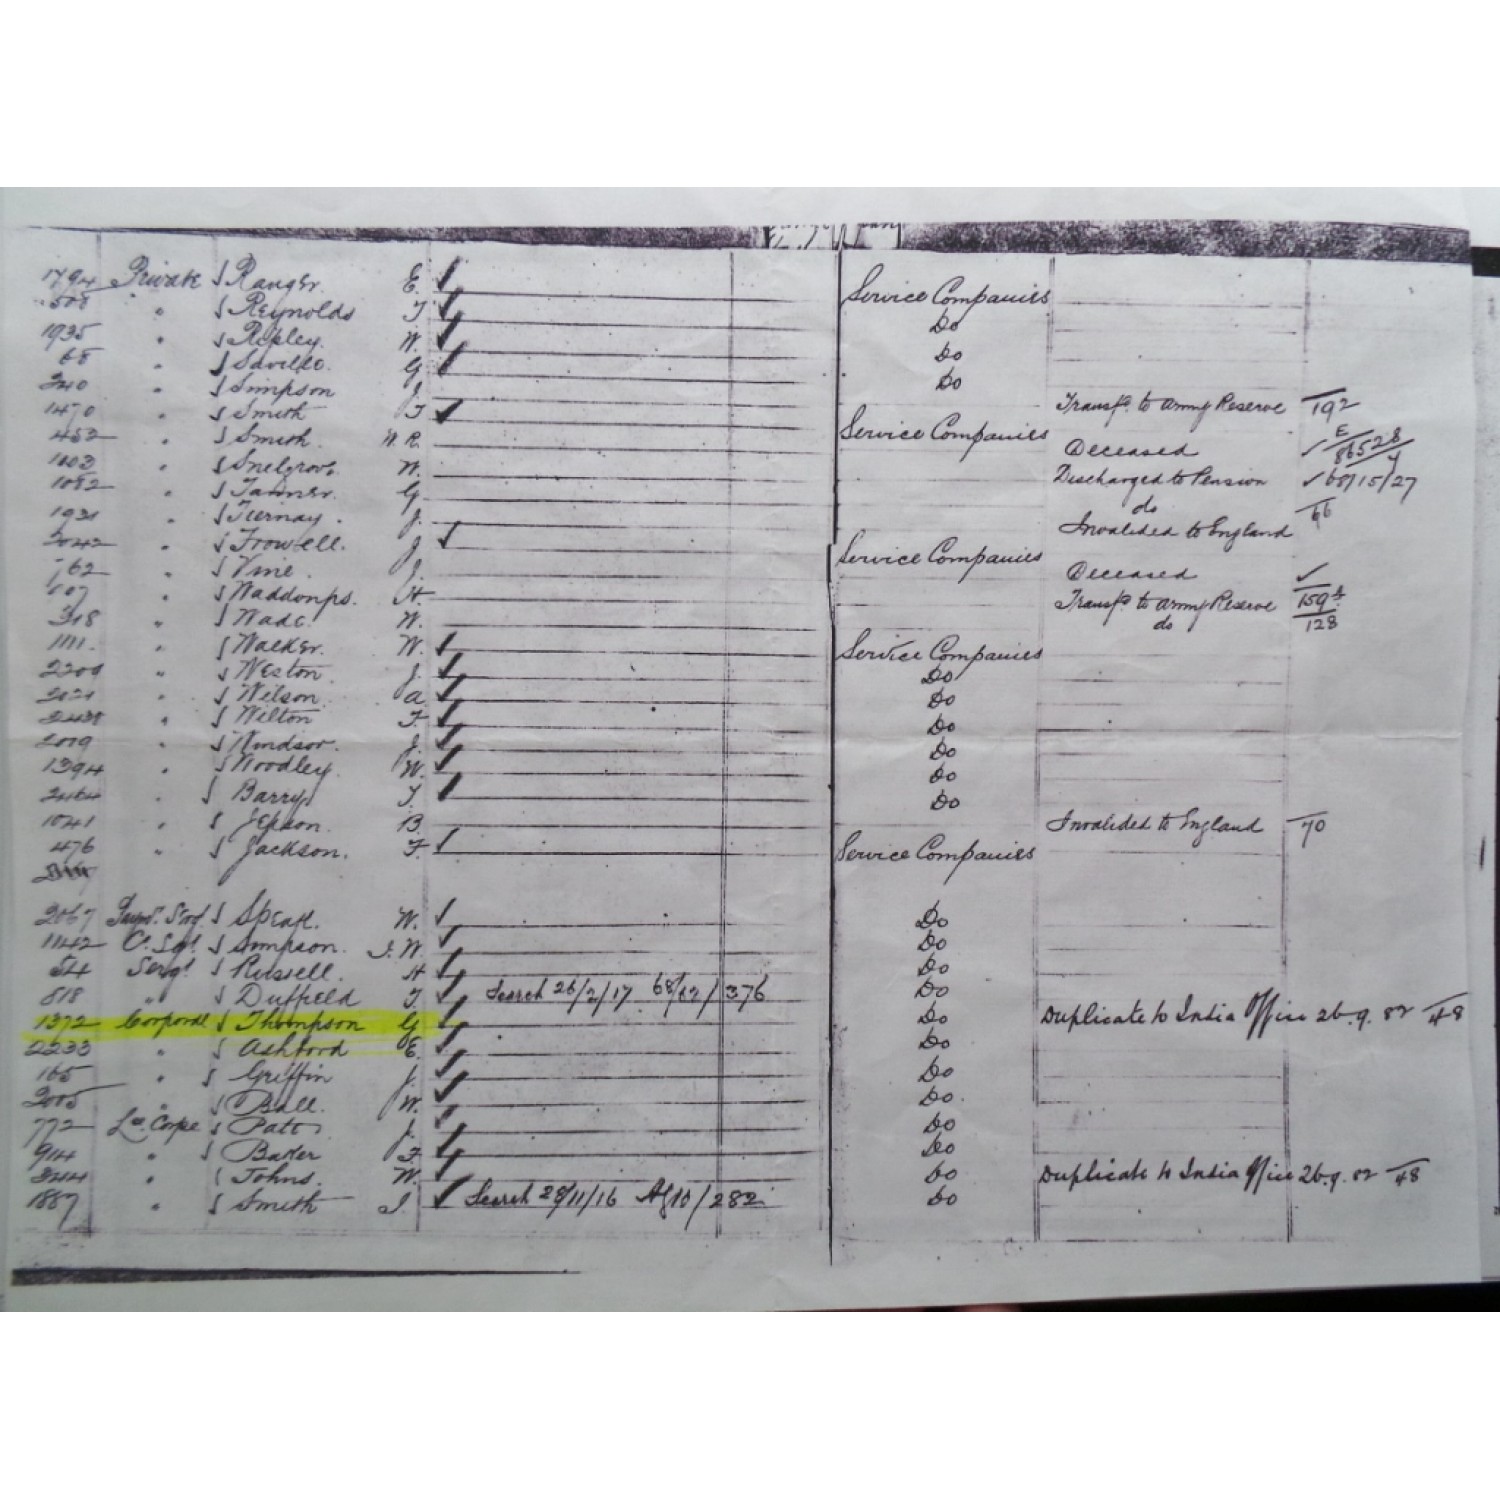 1794 Private Ranger. E. Service Companies
508 " Reynolds T Do
1935 " Repley. W. Do
68 " Saville. G Do
240 " Simpson J. Transfd. to Army Reserve 192
1470 " Smith T Service Companies
452 " Smith. W.R. Deceased E 86528
1003 " Snelgrove W. Discharged to Pension 68/15/27
1082 " Tanner. G do 66
1931 " Tiernay. J. Invalided to England
2042 " Trowell. J Service Companies
762 " Vine. J. Deceased
107 " Waddonps. H. Transfd. to Army Reserve 159
318 " Wade. W. do 128
1111. " Walker. W. Service Companies
2200 " Weston. J. Do
2021 " Wilson. A Do
" Wilton F. Do
2019 " Windsor. J. Do
1394 " Woodley. W. Do
2464 " Barry T. Do
1041 " Jepson. B. Invalided to England 70
476 " Jackson. F. Service Companies
2067 Speak. W. Do
1142 Cr. Sgt. Simpson. J.W. Do
54 Sergt Russell. H Do
818 " Duffield T. Search 26/2/17 68/62/376 Do
1372 Corporal Thompson G Do Duplicate to India Office 26.9.82 48
2233 " Ashford E. Do
165 " Griffin J. Do
2005 " Ball. W. Do.
772 Lce. Corpl Pato J. Do
914 " Baxter F. Do
2444 " Johns. W. Do Duplicate to India Office 26.9.82 48
1887 " Smith J. Search 28/11/16 AG10/282 Do